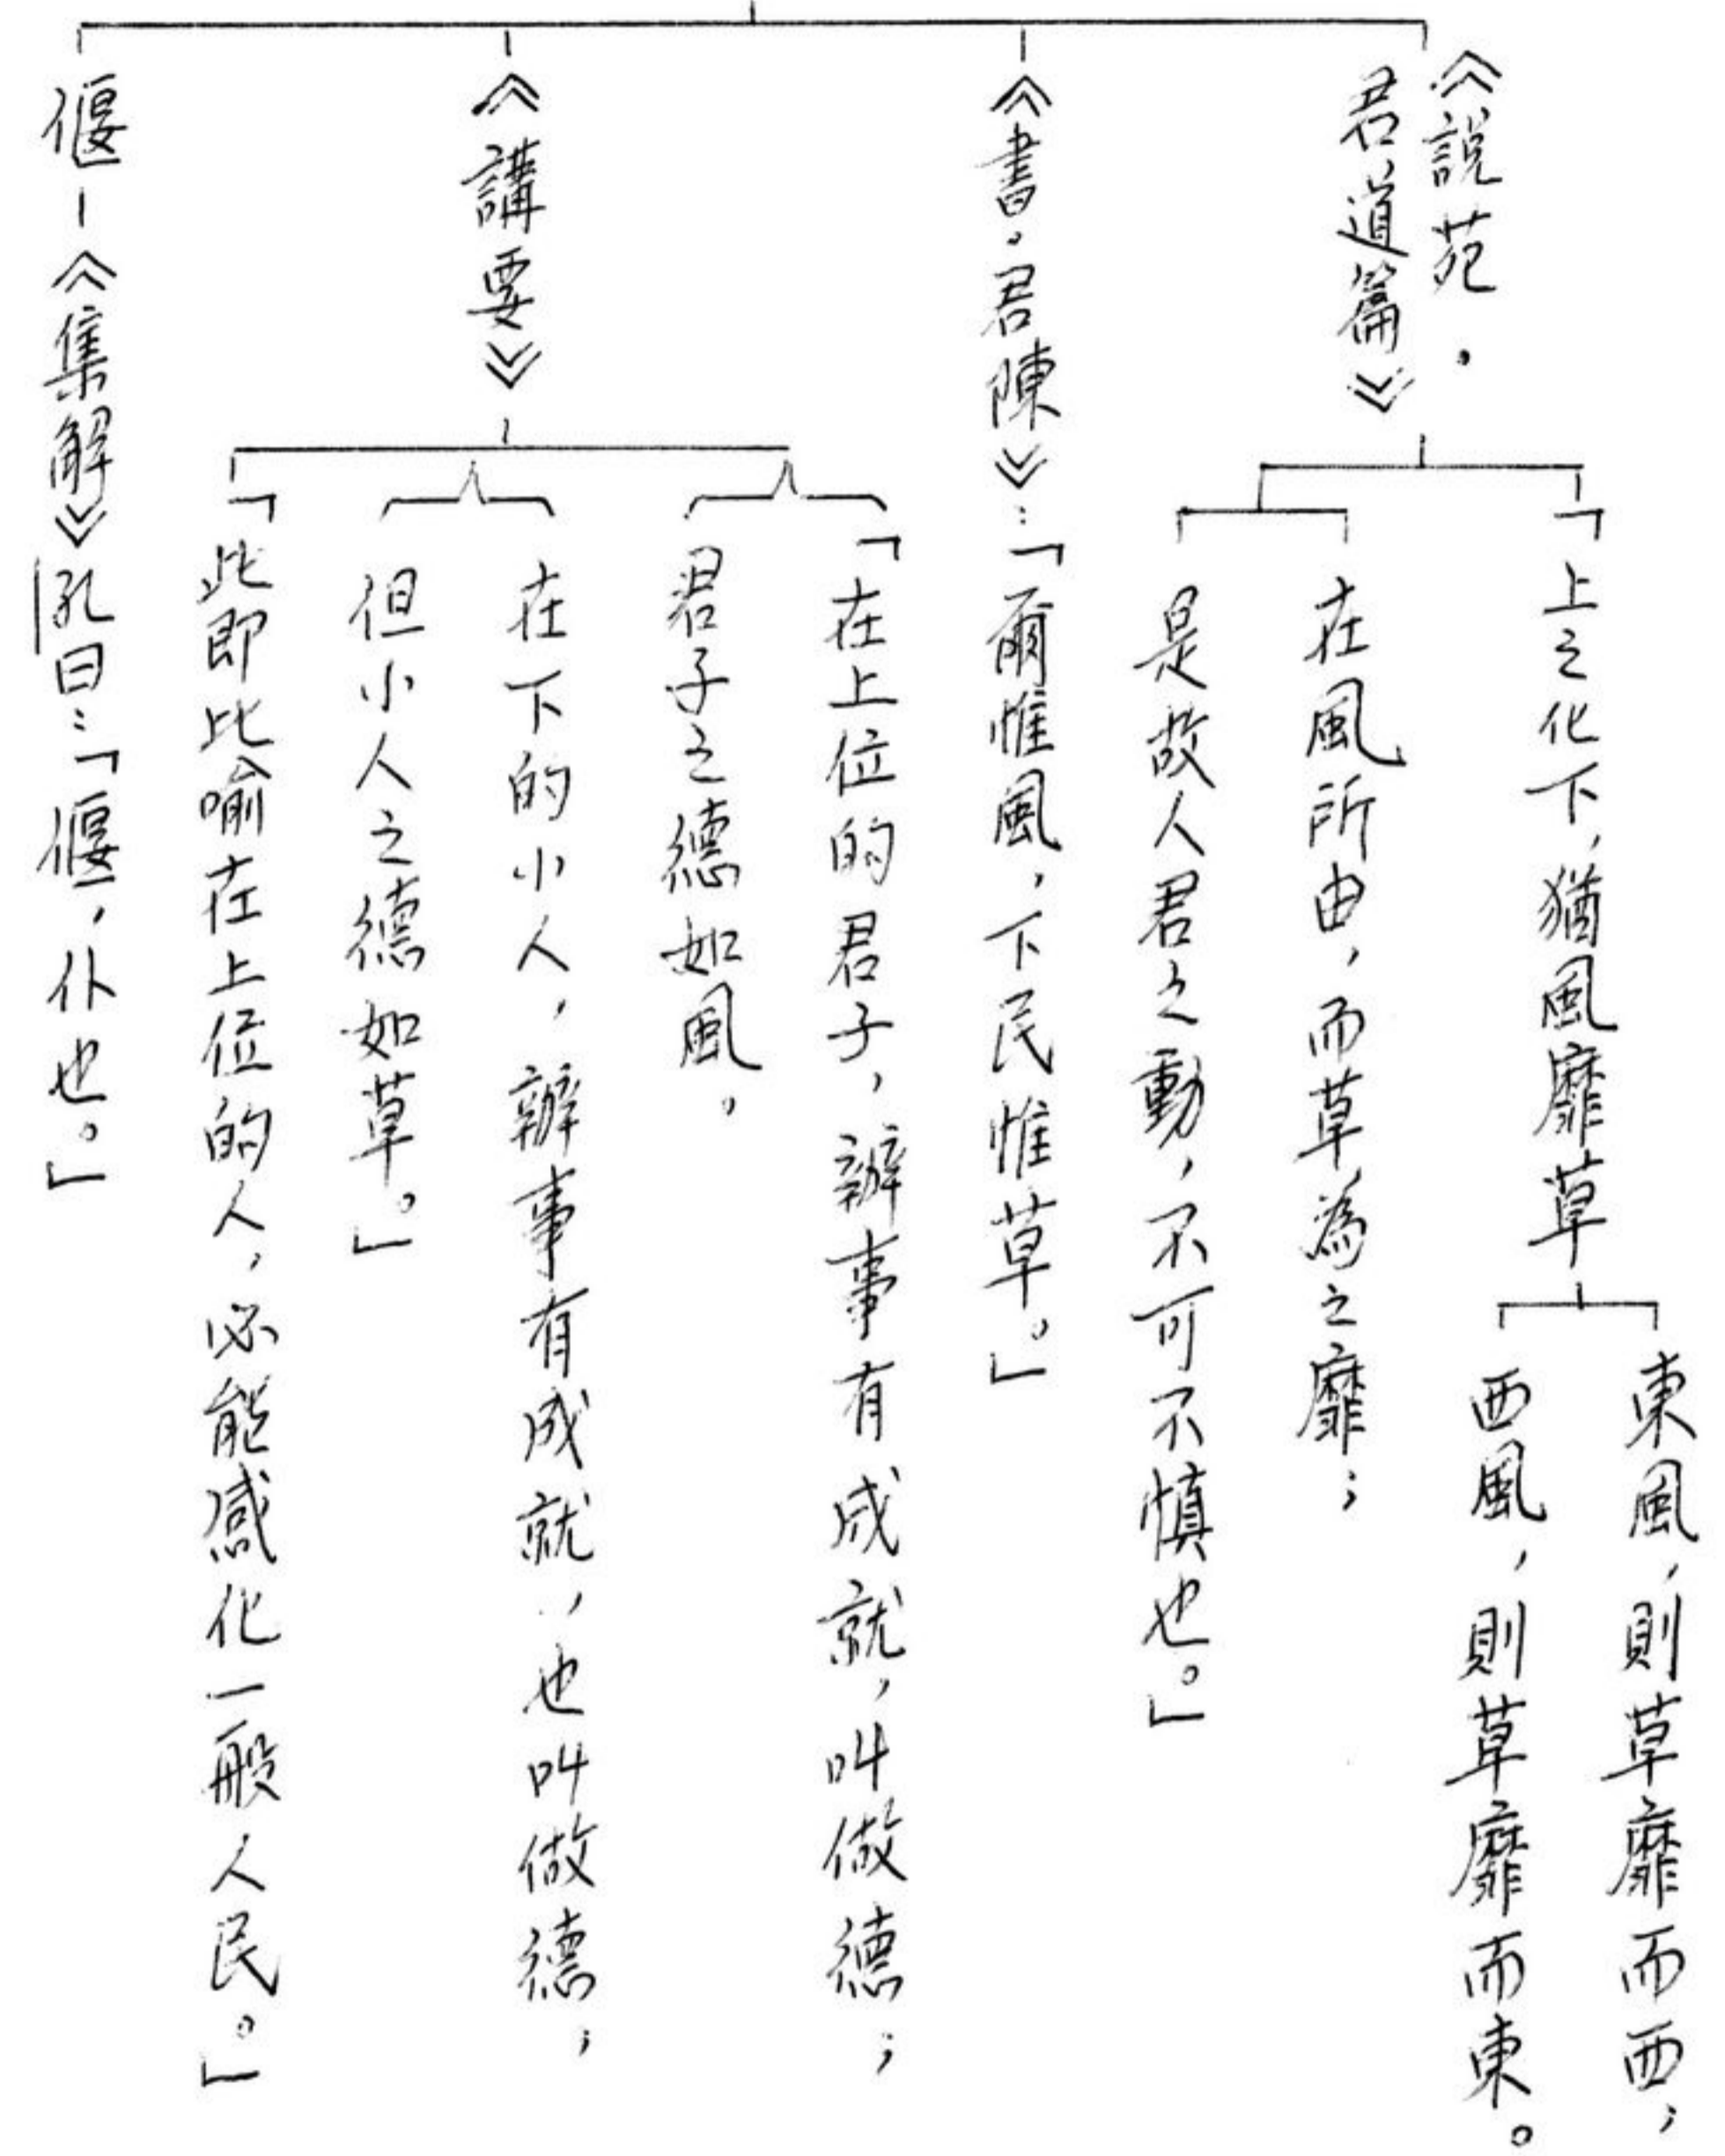 《說苑．
君道篇》
「上之化下，猶風靡草
東風，則草靡而西；
西風，則草靡而東。
在風所由，而草為之靡；
是故人君之動，不可不慎也。」
《書．君陳》：「爾惟風，下民惟草。」
《講要》
「在上位的君子，辦事有成就，叫做德；
君子之德如風。
在下的小人，辦事有成就，也叫做德，
但小人之德如草。」
「此即比喻在上位的人，必能感化一般人民。」
偃－《集解》孔曰：「偃，仆也。」